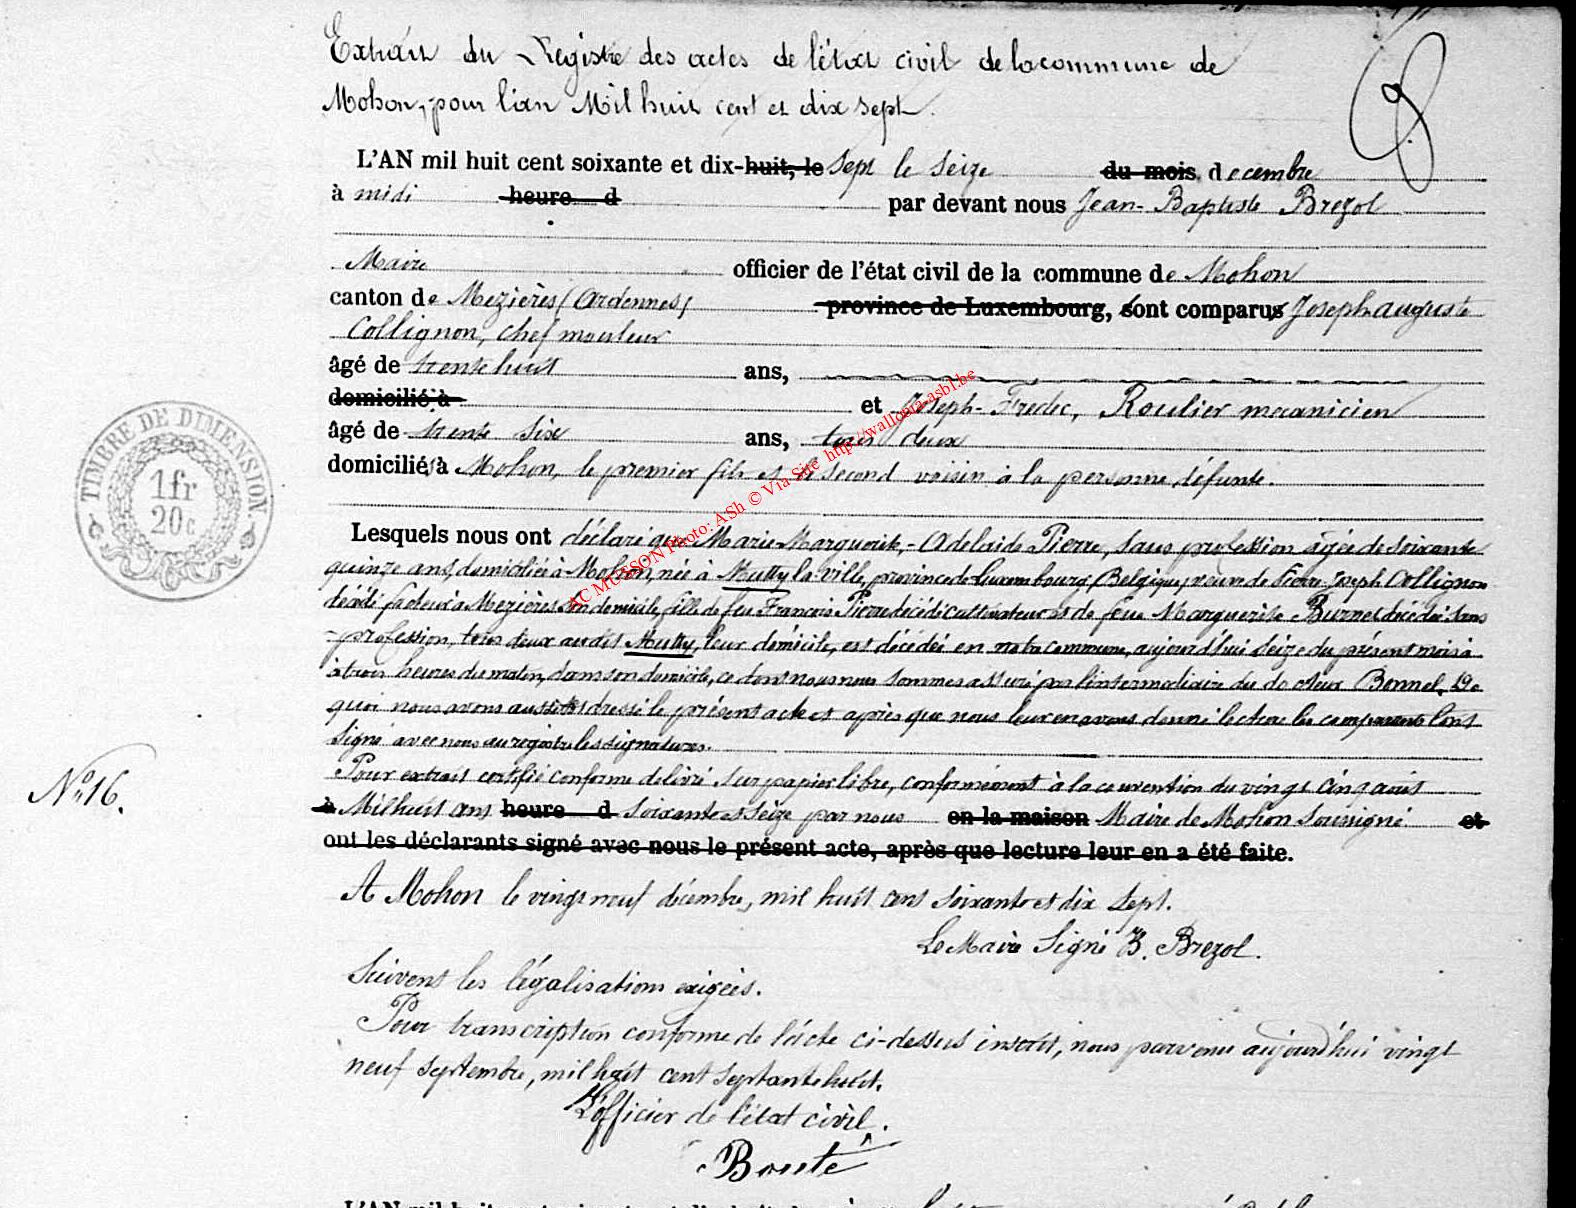 Extrait du Registre des actes de l'état civil de la commune de
Mohon, pour l'an Mil huit cent et dix sept.
L'AN mil huit cent soixante et dix-huit, le sept le seize du mois decembre
à midi heure d par devant nous Jean-Baptiste Brezol
Maire officier de l'état civil de la commune de Mohon
canton de Mezières (Ardennes) province de Luxembourg, sont comparus Joseph auguste
Collignon, chef mouleur
âgé de trente huit ans,
domicilié à et Joseph-Fredec, Roulier mecanicien
âgé de trente six ans, tous deux
domiciliés à Mohon, le premier fils et le second voisin à la personne défunte.
TIMBRE DE DIMENSION.
1fr
20c
Lesquels nous ont déclaré que Marie-Marguerite,-Adelaide Pierre, sans profession agée de soixante
quinze ans, domiciliée à Mohon, née à Mutty la ville, province de Luxembourg, Belgique, veuve de Pierre Joseph Collignon
décédé facteur à Mezières son domicile, fille de feu François Pierre décédé cultivateur et de feue Marguerite Burnet décédée sans
profession, tous deux audit Mutty, leur domicile, est décédée en notre commune, aujourd'hui seize du présent mois à
à trois heures du matin, dans son domicile, ce dont nous nous sommes assuré par l'intermediaire du docteur Bonnel. De
quoi nous avons aussitôt dressé le présent acte et après que nous leur en avons donné lecture les comparants l'ont
signé avec nous au registre les signatures.
Pour extrait certifié conforme delivré sur papier libre, conformément à la convention du vingt cinq août
N° 16.
à Mil huit cent heure d soixante et seize par nous en la maison Maire de Mohon soussigné. et
ont les déclarants signé avec nous le présent acte, après que lecture leur en a été faite.
A Mohon le vingt neuf décembre, mil huit cent soixante et dix sept.
Le Maire Signé B. Brezol.
Suivent les légalisations exigées.
Pour transcription conforme de l'acte ci-dessus inscrit, nous parvenu aujourd'hui vingt
neuf septembre, mil huit cent septante huit.
L'officier de l'état civil.
Bouté
AC MUSSON Photo: ASh © Via Site http://wallonia-asbl.be